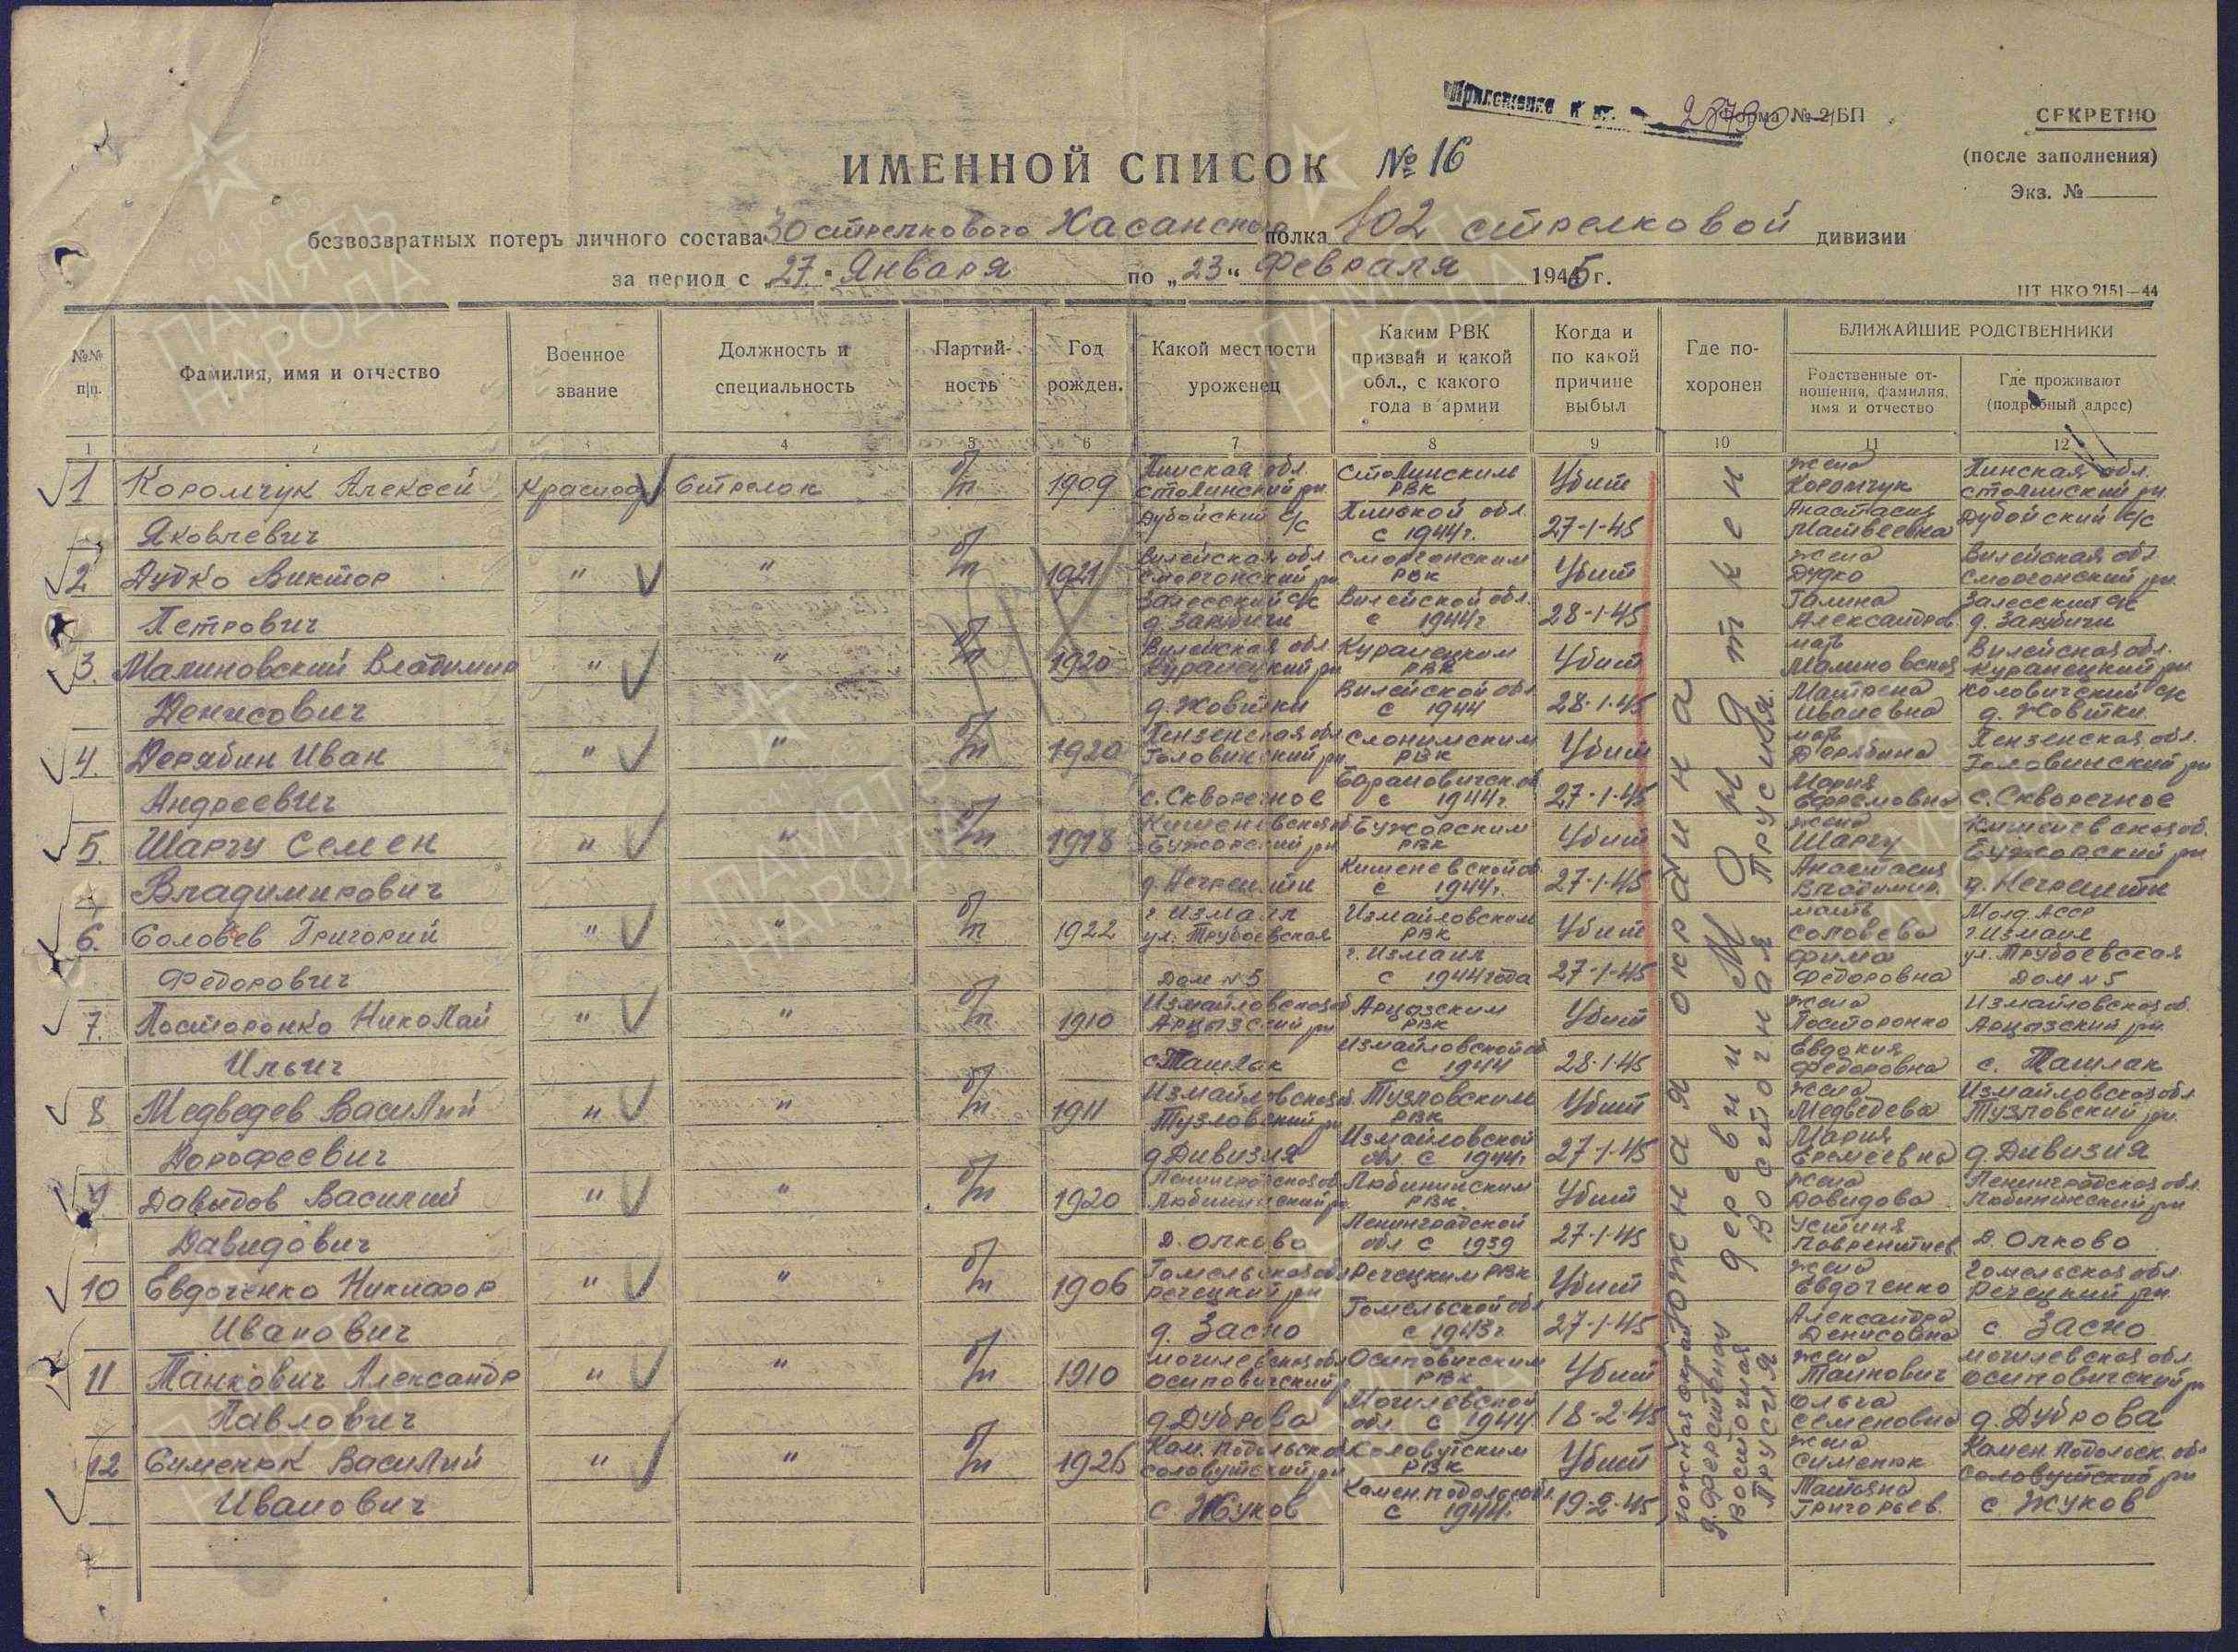 Приложение к вх. 23730
Форма № 2/БП
СЕКРЕТНО
(после заполнения)
Экз. №
ИМЕННОЙ СПИСОК № 16
безвозвратных потерь личного состава 30 стрелкового Хасанского полка 102 стрелковой дивизии
за период с 27 " Января по „23" Февраля 1945 г.
ЦТ НКО 2151—44
№№ п/п.
Фамилия, имя и отчество
Военное звание
Должность и специальность
Партийность
Год рожден.
Какой местности уроженец
Каким РВК призван и какой обл., с какого года в армии
Когда и по какой причине выбыл
Где похоронен
БЛИЖАЙШИЕ РОДСТВЕННИКИ
Родственные отношения, фамилия, имя и отчество
Где проживают (подробный адрес)
1 2 3 4 5 6 7 8 9 10 11 12
1 Коромчук Алексей Красноад Стрелок б/п 1909 Пинская обл. Столинский рн Столинским РВК Убит жена Коромчук Пинская обл. Столинский рн.
Яковлевич Дубойский с/с Пинской обл. с 1944г. 27-1-45 Анастасия Матвеевна Дубойский с/с
2 Дудко Виктор " " б/п 1921 Вилейская обл Сморгонский рн Сморгонским РВК Убит жена Дудко Вилейская обл Сморгонский рн
Петрович Залесский с/с д. Зарудичи Вилейской обл. с 1944г 28-1-45 Галина Александров Залесский с/с д. Зарудичи
3. Малиновский Владимир " " б/п 1920 Вилейская обл Куранецкий рн Куранецким РВК Убит мать Малиновская Вилейская обл. Куранецкий рн
Денисович д. Жовтки Вилейской обл с 1944 28-1-45 Матрена Ивановна Коловичский с/с д. Жовтки
4. Дерябин Иван " " б/п 1920 Пензенская обл Головинский рн Слонимским РВК Убит мать Дерябина Пензенская обл. Головинский рн
Андреевич с. Скворечное Барановичск. об с 1944г 27-1-45 Мария Ефремовна с. Скворечное
5. Шаргу Семен " " б/п 1918 Кишеневская об Бужорский рн Бужорским РВК Убит жена Шаргу Кишеневская об. Бужорский рн
Владимирович д. Негрешти Кишеневской об. с 1944г. 27-1-45 Анастасия Владимир. д. Негрешти
6. Соловев Григорий " " б/п 1922 г. Измаил ул. Трубоевская Измайловским РВК Убит мать Соловева Молд. АССР г. Измаил
Федорович Дом № 5 г. Измаил с 1944 года 27-1-45 Фима Федоровна ул. Трубоевская Дом № 5
7. Посторонко Николай " " б/п 1910 Измайловская об Арцызский рн Арцызским РВК Убит жена Посторонко Измайловская об. Арцызский рн.
Ильич с. Ташлак Измайловской об с 1944 28-1-45 Евдокия Федоровна с. Ташлак
8 Медведев Василий " " б/п 1911 Измайловская об. Тузловский рн Тузловским РВК Убит жена Медведева Измайловская обл Тузловский рн.
Дорофеевич д. Дивизия Измайловской обл. с 1944г 27-1-45 Мария Еремеевна д. Дивизия
9 Давыдов Василий " " б/п 1920 Ленинградская об. Любининский рн Любининским РВК Убит жена Давидова Ленинградская обл. Любининский рн
Давидович д. Олково Ленинградской обл с 1939 27-1-45 Устиния Лаврентиев. д. Олково
10 Евдоченко Никифор " " б/п 1906 Гомельская обл Речецкий рн Речецким РВК Убит жена Евдоченко Гомельская обл. Речецкий рн.
Иванович д. Засно Гомельской обл с 1943г 27-1-45 Александра Денисовна с Засно
11 Танкович Александр " " б/п 1910 Могилевская обл Осиповичский р Осиповичским РВК Убит жена Танкович Могилевская обл. Осиповичский рн
Павлович д. Дуброва Могилевской обл с 1944 18-2-45 Ольга Семеновна д. Дуброва
12 Сименюк Василий " " б/п 1926 Кам. Подольская Соловутский рн Соловутским РВК Убит жена Сименюк Камен. Подольск. об Соловутский рн
Иванович с Жуков Камен. Подольской об. с 1944г. 19-2-45 Татьяна Григорьев. с. Жуков
Южная окраина
деревни
Восточная Пруссия
Южная окраин
д.
Восточная
Пруссия
ПАМЯТЬ НАРОДА